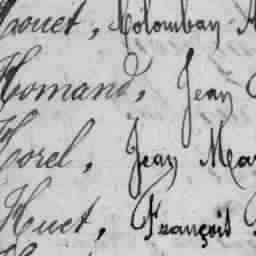 Houet, Colomban
Homand, Jean
Horel, Jean Mar
Huet, François